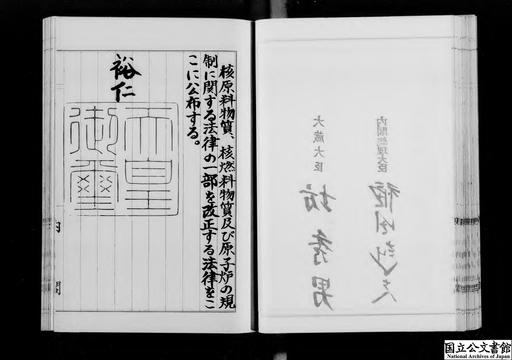 核原料物質、核燃料物質及び原子炉の規
制に関する法律の一部を改正する法律をこ
こに公布する。
裕仁
天皇
御璽
内閣
内閣総理大臣
大蔵大臣
坊秀男
国立公文書館
National Archives of Japan